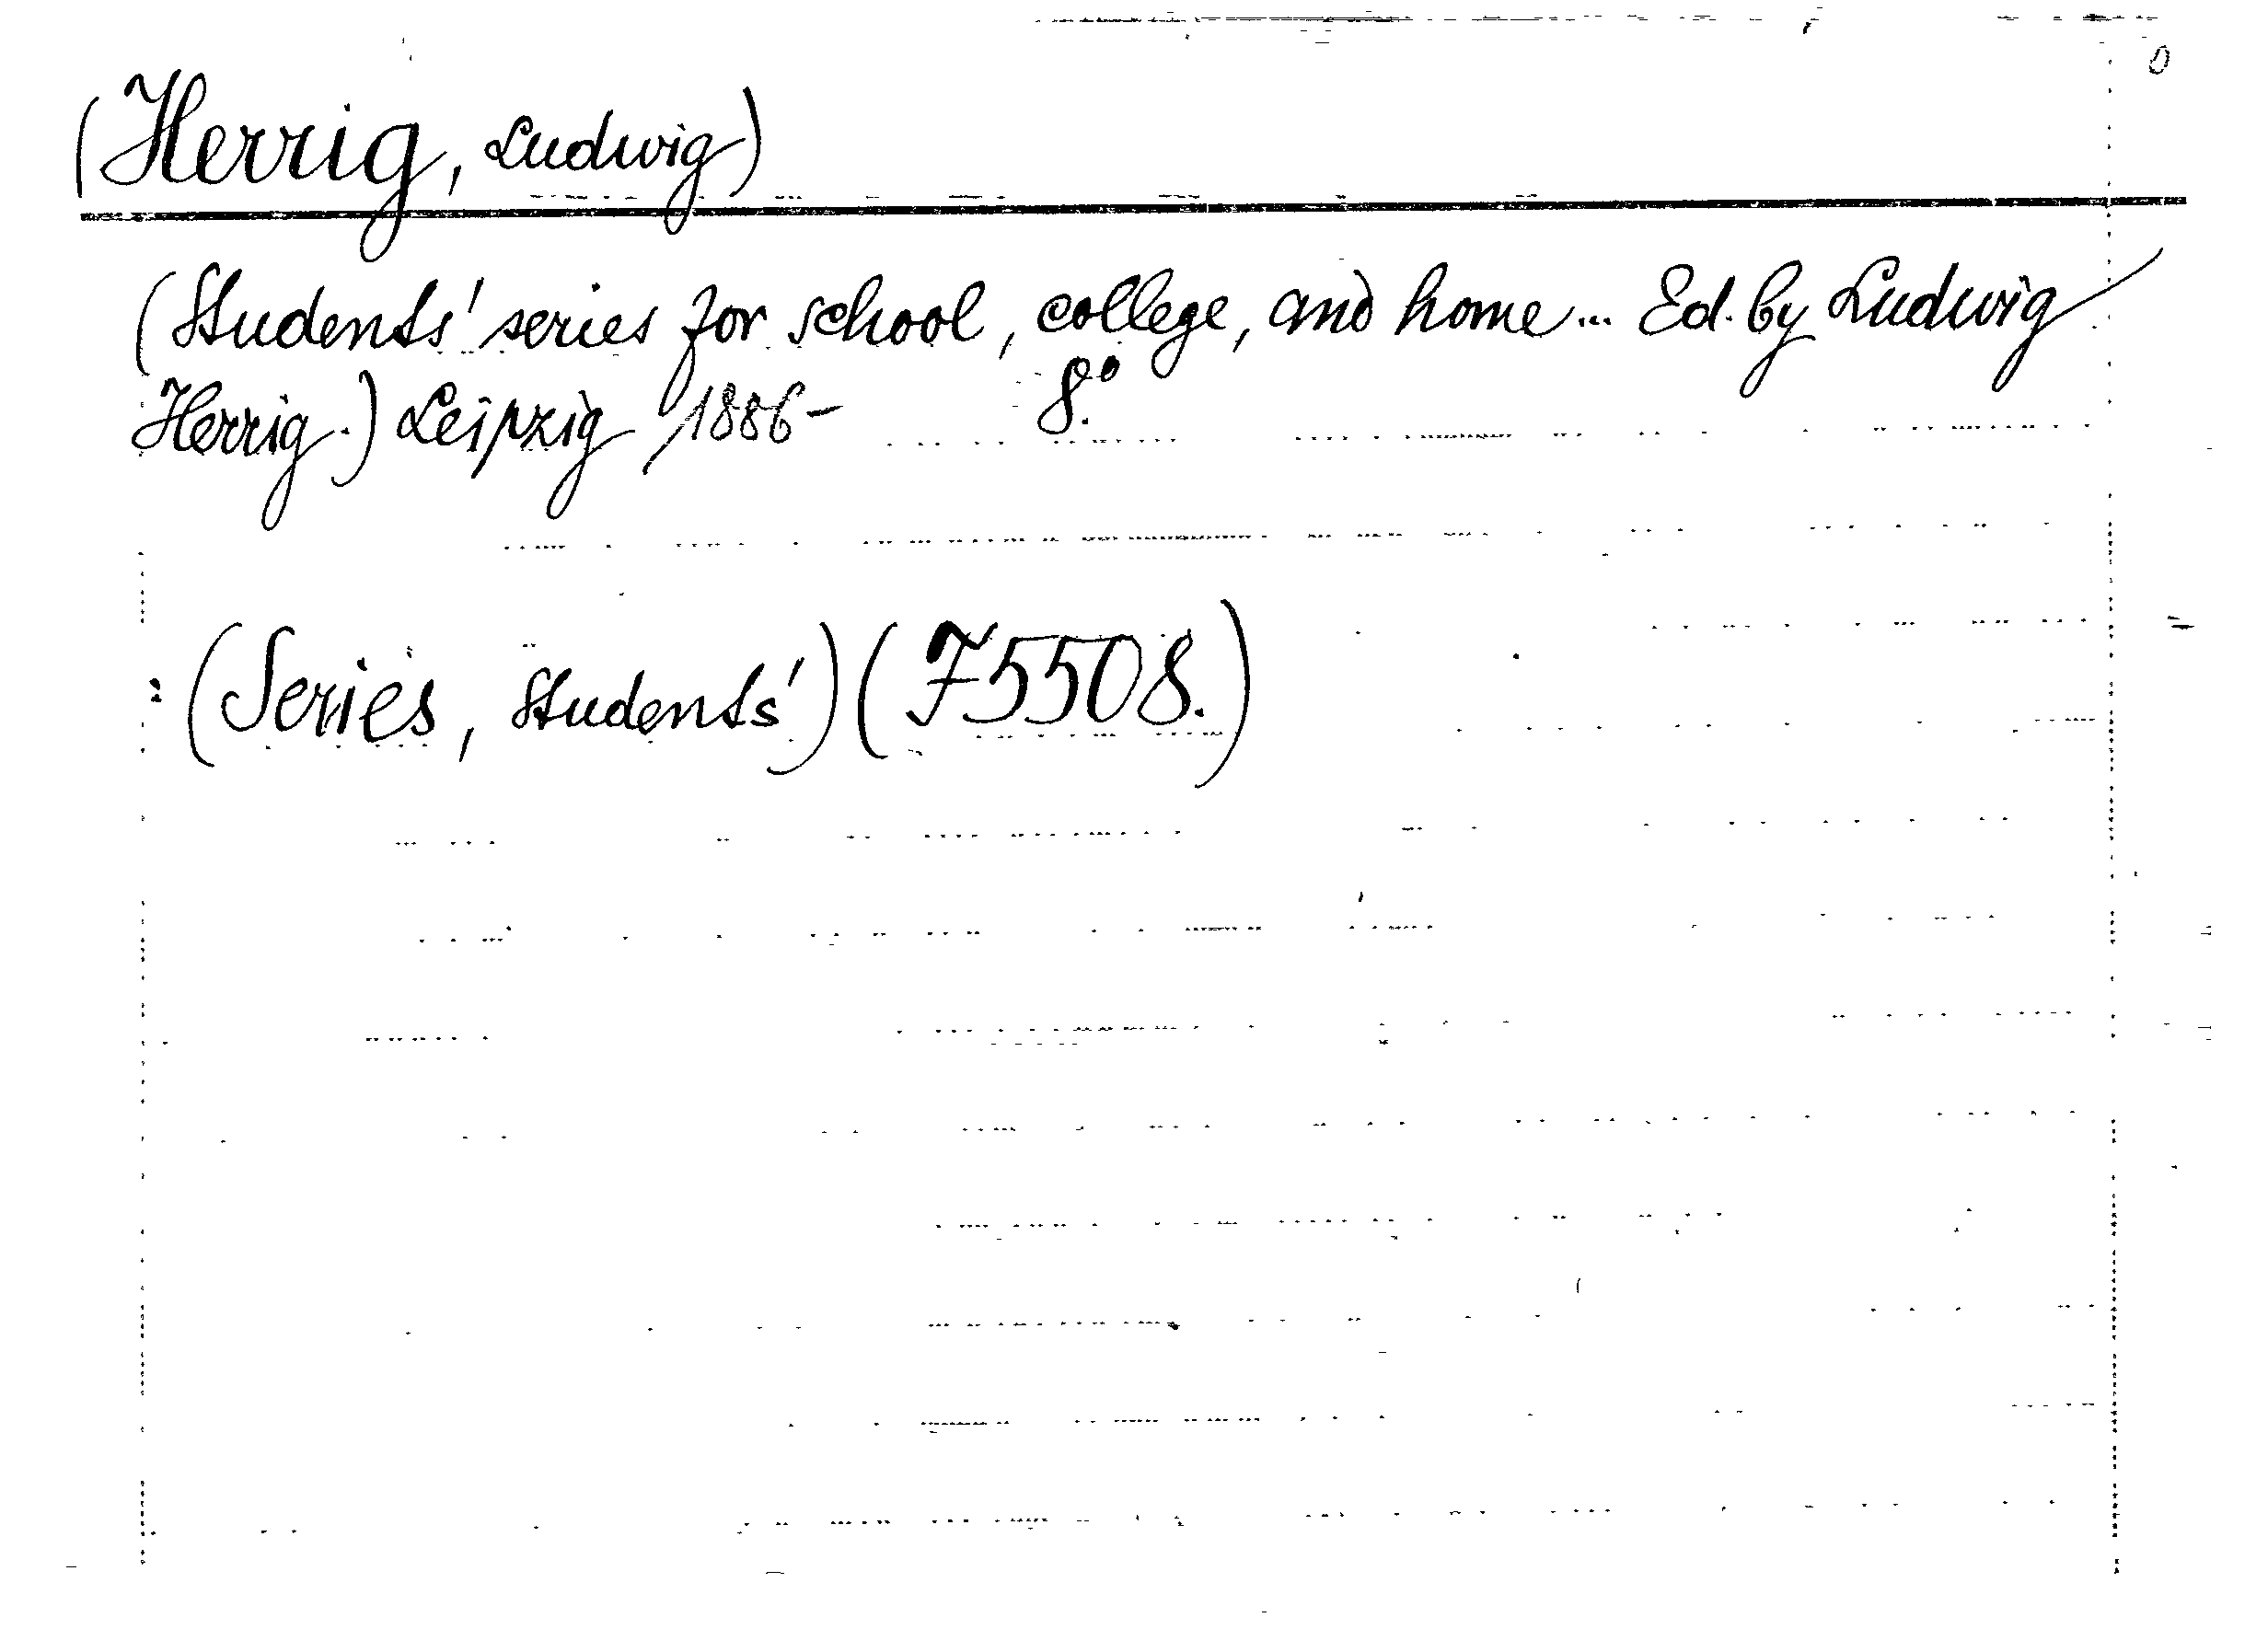 (Herrig, Ludwig)
(Students' series for school, college, and home... Ed. by Ludwig
Herrig.) Leipzig, 1886- 8.°
: (Series, Students') (F5508.)